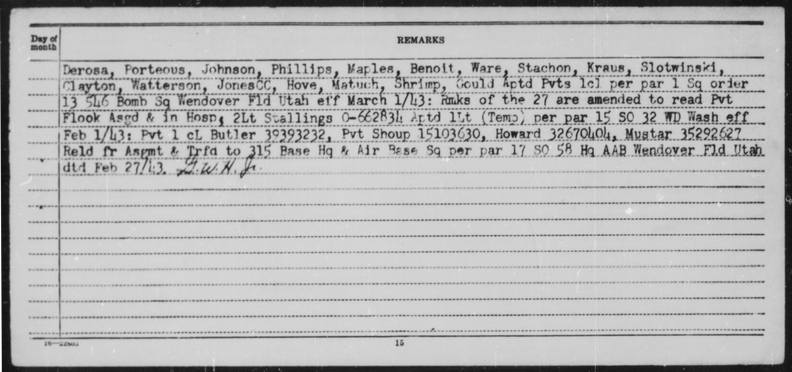 Day of
month
REMARKS
Derosa, Porteous, Johnson, Phillips, Maples, Benoit, Ware, Stachon, Kraus, Slotwinski,
Clayton, Watterson, JonesCC, Hove, Matuch, Shrimp, Gould Aptd Pvts 1cl per par 1 Sq order
13 546 Bomb Sq Wendover Fld Utah eff March 1/43: Rmks of the 27 are amended to read Pvt
Flook Asgd & in Hosp, 2Lt Stallings O-662834 Aptd 1Lt (Temp) per par 15 SO 32 WD Wash eff
Feb 1/43: Pvt 1 cL Butler 39393232, Pvt Shoup 15103630, Howard 32670404, Mustar 35292627
Reld fr Asgmt & Trfd to 315 Base Hq & Air Base Sq per par 17 SO 58 Hq AAB Wendover Fld Utah
dtd Feb 27/43. G.W.H. Jr.
15